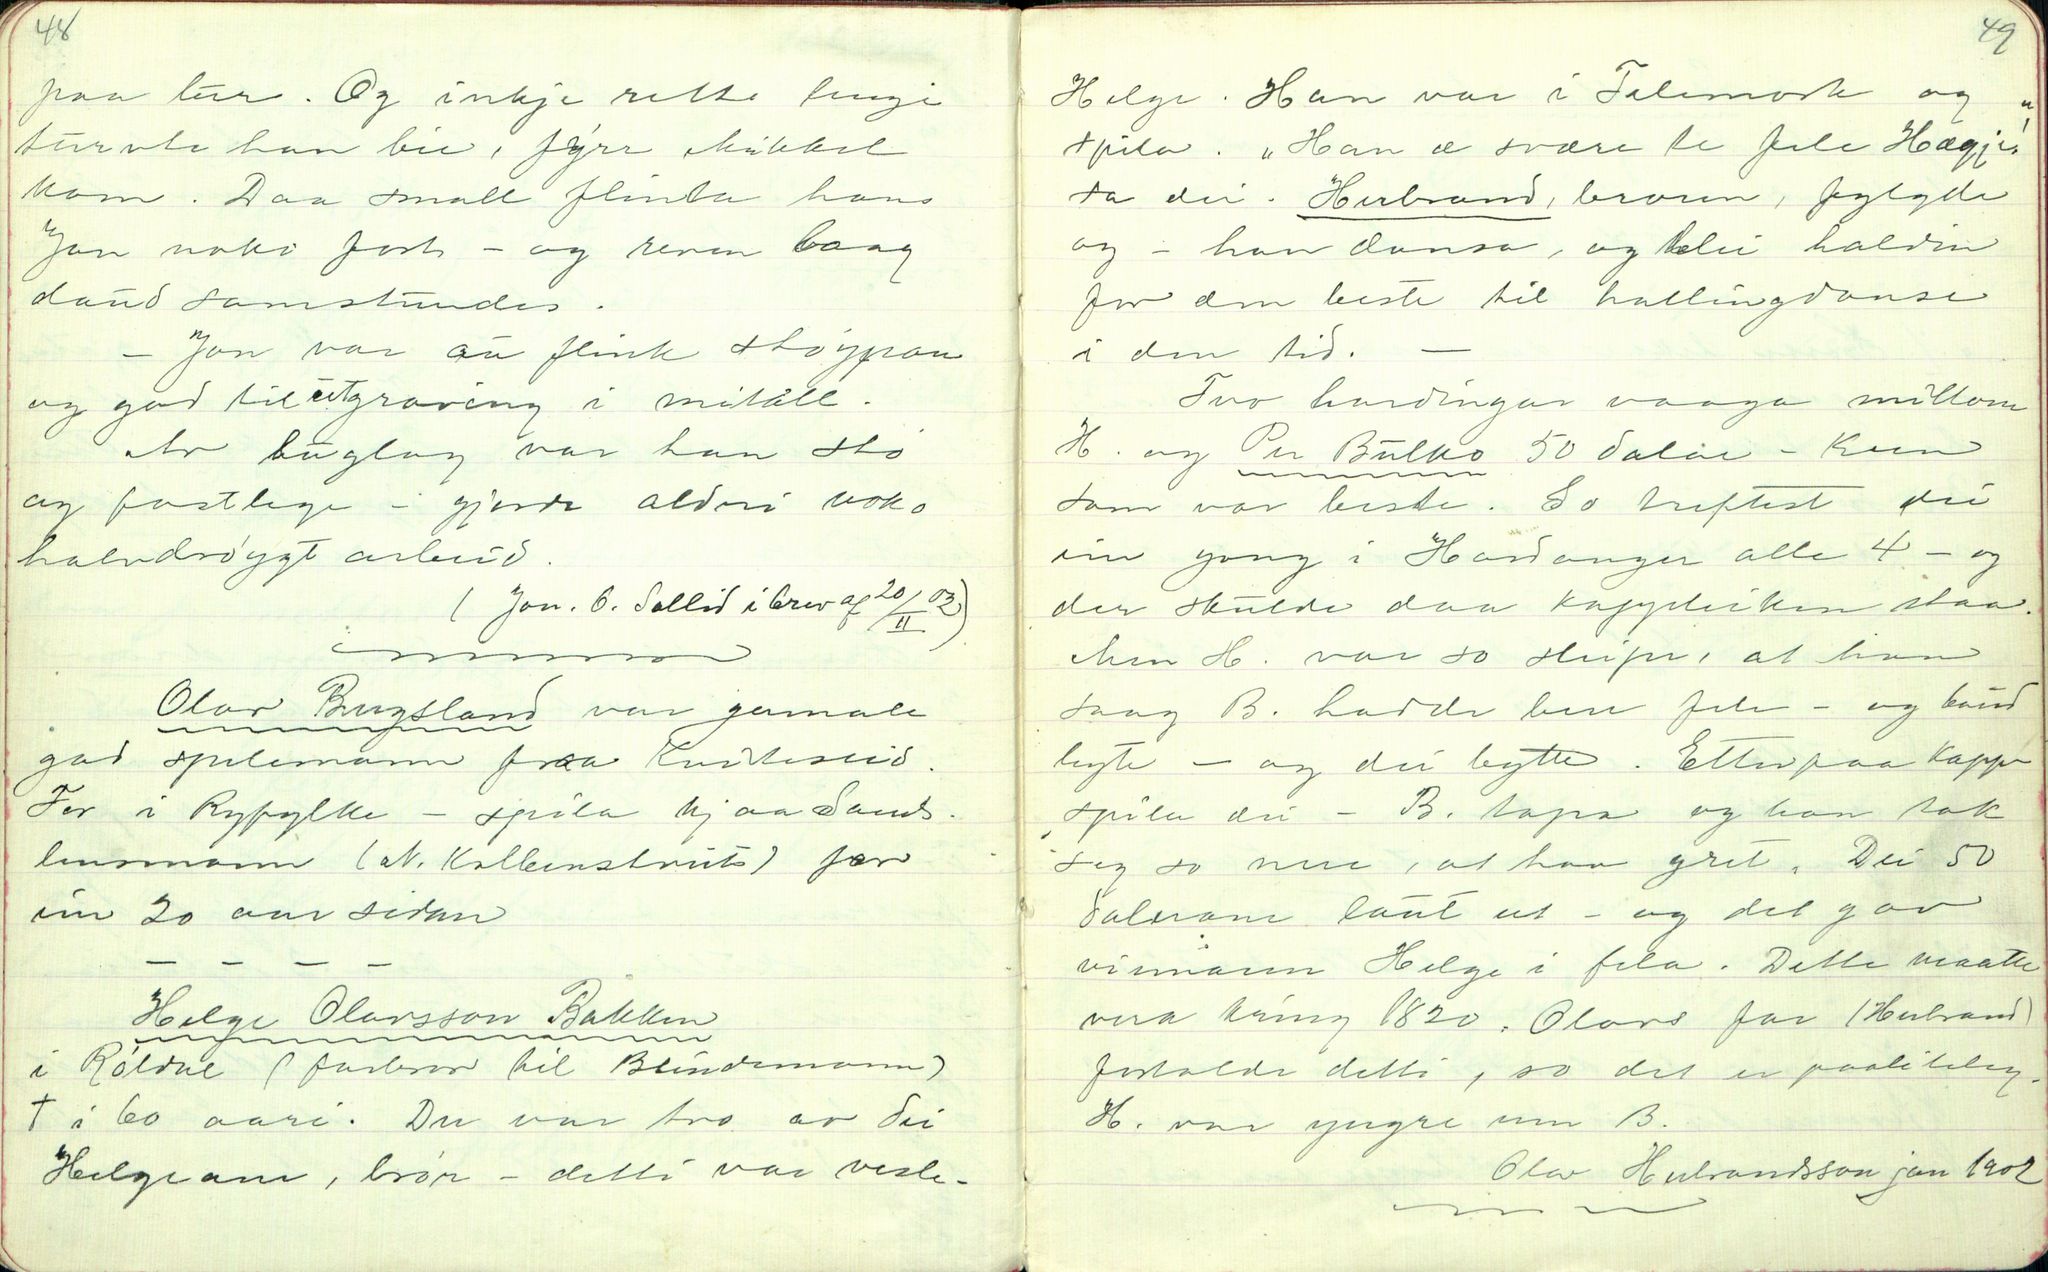 48
paa lur. Og inkje rette lengi
turvte han bie, fyrr Mikkel
kom. Daa small flinta hans
Jon noko fort - og reven laag
daud samstundes.
- Jon var au flink støypar
og god til utgraving i metall.
Av huglag var han stø
og fastlege - gjorde aldri noko
halvdrøygt arbeid.
( Jon. O. Sollid i brev af 20/II 02)
Olav Brugsland var gamale
god spelemann fraa Kviteseid.
For i Ryfylke - spila hjaa Sands
lensmann (at. Kolbenstveit) for
ein 20 aar sidan
- - - -
Helge Olavsson Bakken
i Røldal ( farbror til Blindemann)
† i 60 aari. Der var tvo av dei
Helgeane, brør - detti var vesle-
49
Helge. Han var i Telemork og
spila. „Han æ svære te fele Hægje"
sa dei. Herbrand, broren, fylgde
og - han dansa, og blei haldin
for den beste til hallingdanse
i den tid. -
Tvo hardingar vaaga millom
H. og Per Bulko 50 dalar - kven
som var beste. So treftest dei
ein gong i Hardanger alle 4 - og
der skulde daa kappleiken staa.
Men H. var so sleip, at han
saag B. hadde bere fele - og baud
byte - og dei bytte. Etterpaa kapp-
spila dei - B. tapa og han tok
seg so nere, at han gret. Dei 50
dalerane laut ut - og det gav
vinnaren Helge i fela. Dette maatte
vera kring 1820. Olavs far (Herbrand)
fortalde detti, so det er paaliteleg.
H. var yngre enn B.
Olav Herbrandsson jan 1902